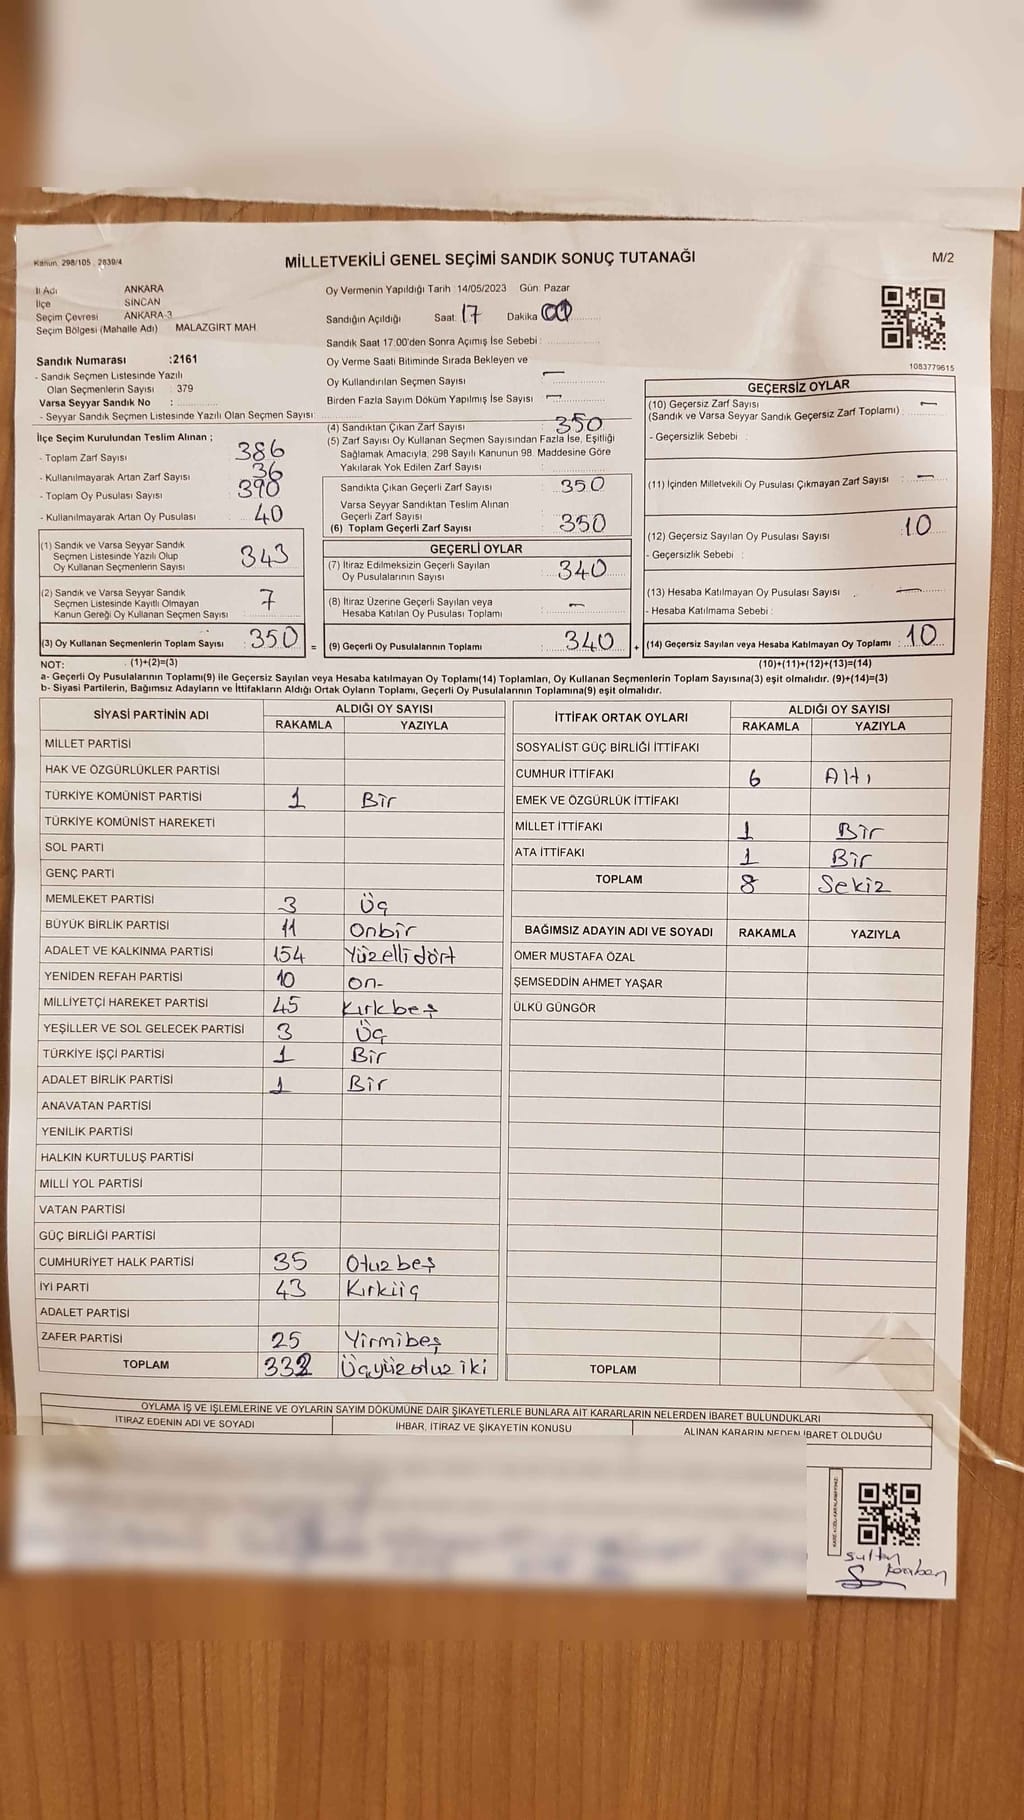 Kanun: 298/105 : 2839/4
MİLLETVEKİLİ GENEL SEÇİMİ SANDIK SONUÇ TUTANAĞI
M/2
İl Adı ANKARA
İlçe SİNCAN
Seçim Çevresi ANKARA-3
Seçim Bölgesi (Mahalle Adı) MALAZGİRT MAH.
Oy Vermenin Yapıldığı Tarih 14/05/2023 Gün: Pazar
Sandığın Açıldığı Saat: 17 Dakika
Sandık Saat 17.00'den Sonra Açımış İse Sebebi :
Sandık Numarası :2161
- Sandık Seçmen Listesinde Yazılı
Olan Seçmenlerin Sayısı : 379
Varsa Seyyar Sandık No :
- Seyyar Sandık Seçmen Listesinde Yazılı Olan Seçmen Sayısı:
Oy Verme Saati Bitiminde Sırada Bekleyen ve
Oy Kullandırılan Seçmen Sayısı —
Birden Fazla Sayım Döküm Yapılmış İse Sayısı —
1083779615
İlçe Seçim Kurulundan Teslim Alınan ;
- Toplam Zarf Sayısı 386
- Kullanılmayarak Artan Zarf Sayısı 36
- Toplam Oy Pusulası Sayısı 390
- Kullanılmayarak Artan Oy Pusulası 40
(1) Sandık ve Varsa Seyyar Sandık
Seçmen Listesinde Yazılı Olup
Oy Kullanan Seçmenlerin Sayısı 343
(2) Sandık ve Varsa Seyyar Sandık
Seçmen Listesinde Kayıtlı Olmayan
Kanun Gereği Oy Kullanan Seçmen Sayısı 7
(3) Oy Kullanan Seçmenlerin Toplam Sayısı 350 =
(4) Sandıktan Çıkan Zarf Sayısı 350
(5) Zarf Sayısı Oy Kullanan Seçmen Sayısından Fazla İse, Eşitliği
Sağlamak Amacıyla, 298 Sayılı Kanunun 98. Maddesine Göre
Yakılarak Yok Edilen Zarf Sayısı :
Sandıkta Çıkan Geçerli Zarf Sayısı : 350
Varsa Seyyar Sandıktan Teslim Alınan
Geçerli Zarf Sayısı
(6) Toplam Geçerli Zarf Sayısı : 350
GEÇERLİ OYLAR
(7) İtiraz Edilmeksizin Geçerli Sayılan
Oy Pusulalarının Sayısı : 340
(8) İtiraz Üzerine Geçerli Sayılan veya
Hesaba Katılan Oy Pusulası Toplamı : —
(9) Geçerli Oy Pusulalarının Toplamı : 340 +
GEÇERSİZ OYLAR
(10) Geçersiz Zarf Sayısı
(Sandık ve Varsa Seyyar Sandık Geçersiz Zarf Toplamı) : —
- Geçersizlik Sebebi :
(11) İçinden Milletvekili Oy Pusulası Çıkmayan Zarf Sayısı : —
(12) Geçersiz Sayılan Oy Pusulası Sayısı : 10
- Geçersizlik Sebebi :
(13) Hesaba Katılmayan Oy Pusulası Sayısı : —
- Hesaba Katılmama Sebebi :
(14) Geçersiz Sayılan veya Hesaba Katılmayan Oy Toplamı : 10
NOT: (1)+(2)=(3)
(10)+(11)+(12)+(13)=(14)
a- Geçerli Oy Pusulalarının Toplamı(9) ile Geçersiz Sayılan veya Hesaba katılmayan Oy Toplamı(14) Toplamları, Oy Kullanan Seçmenlerin Toplam Sayısına(3) eşit olmalıdır. (9)+(14)=(3)
b- Siyasi Partilerin, Bağımsız Adayların ve İttifakların Aldığı Ortak Oyların Toplamı, Geçerli Oy Pusulalarının Toplamına(9) eşit olmalıdır.
SİYASİ PARTİNİN ADI ALDIĞI OY SAYISI
RAKAMLA YAZIYLA
MİLLET PARTİSİ
HAK VE ÖZGÜRLÜKLER PARTİSİ
TÜRKİYE KOMÜNİST PARTİSİ 1 Bir
TÜRKİYE KOMÜNİST HAREKETİ
SOL PARTİ
GENÇ PARTİ
MEMLEKET PARTİSİ 3 Üç
BÜYÜK BİRLİK PARTİSİ 11 Onbir
ADALET VE KALKINMA PARTİSİ 154 Yüzellidört
YENİDEN REFAH PARTİSİ 10 on-
MİLLİYETÇİ HAREKET PARTİSİ 45 Kırkbeş
YEŞİLLER VE SOL GELECEK PARTİSİ 3 Üç
TÜRKİYE İŞÇİ PARTİSİ 1 Bir
ADALET BİRLİK PARTİSİ 1 Bir
ANAVATAN PARTİSİ
YENİLİK PARTİSİ
HALKIN KURTULUŞ PARTİSİ
MİLLİ YOL PARTİSİ
VATAN PARTİSİ
GÜÇ BİRLİĞİ PARTİSİ
CUMHURİYET HALK PARTİSİ 35 Otuzbeş
İYİ PARTİ 43 Kırküç
ADALET PARTİSİ
ZAFER PARTİSİ 25 Yirmibeş
TOPLAM 332 Üçyüzotuziki
İTTİFAK ORTAK OYLARI ALDIĞI OY SAYISI
RAKAMLA YAZIYLA
SOSYALİST GÜÇ BİRLİĞİ İTTİFAKI
CUMHUR İTTİFAKI 6 Altı
EMEK VE ÖZGÜRLÜK İTTİFAKI
MİLLET İTTİFAKI 1 Bir
ATA İTTİFAKI 1 Bir
TOPLAM 8 Sekiz
BAĞIMSIZ ADAYIN ADI VE SOYADI RAKAMLA YAZIYLA
ÖMER MUSTAFA ÖZAL
ŞEMSEDDİN AHMET YAŞAR
ÜLKÜ GÜNGÖR
TOPLAM
OYLAMA İŞ VE İŞLEMLERİNE VE OYLARIN SAYIM DÖKÜMÜNE DAİR ŞİKAYETLERLE BUNLARA AİT KARARLARIN NELERDEN İBARET BULUNDUKLARI
İTİRAZ EDENİN ADI VE SOYADI İHBAR, İTİRAZ VE ŞİKAYETİN KONUSU ALINAN KARARIN NEDEN İBARET OLDUĞU
sultan